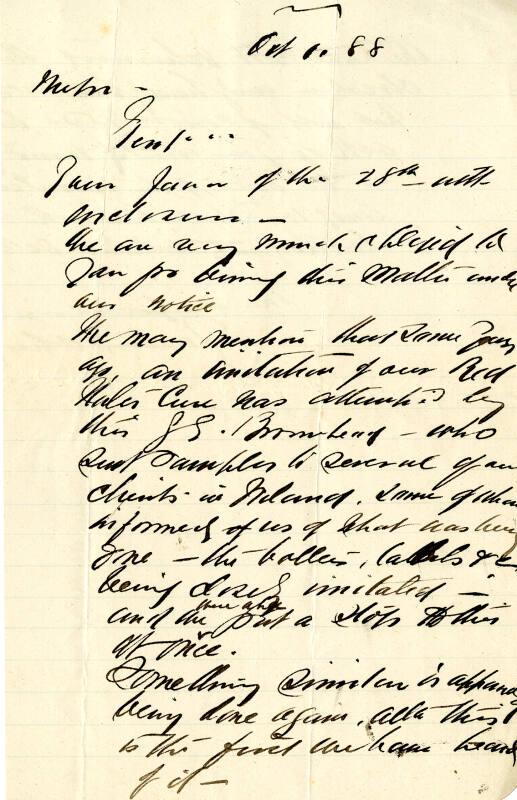 Oct 1. 88
Messrs –
Gent
Your favor of the 28th ult
inclosure –
We are very much obliged to
you for bring this matter under
our notice
We may mention that some years
ago, an imitation of our Red
was attempted by
this J E. – who
sent samples to several of our
clients in Ireland, some of whom
informed of us of what was being
done – the bottles, labels &c
being closely imitated –
and we were able put a stop to this
at once.
Something similar is apparently
being done again, altho this
is the first we have heard
of it –